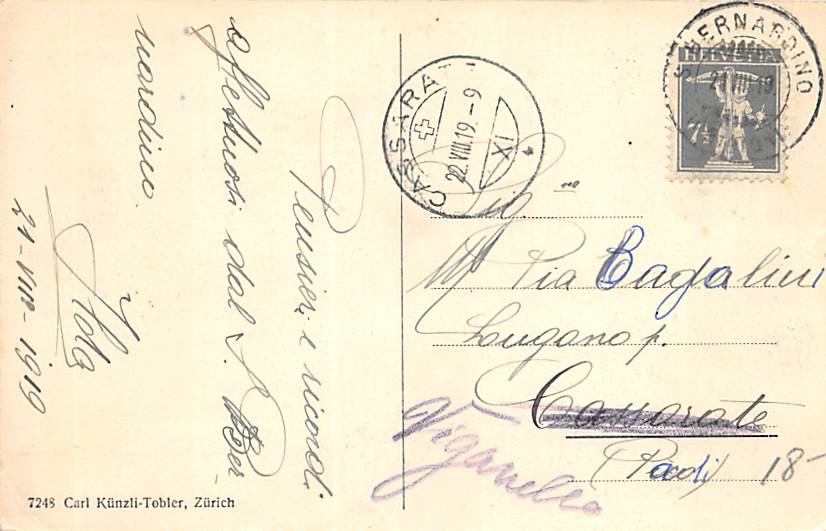 Pensieri e ricordi
affettuosi dal S. Ber-
nardino.
Ilda
21-VIII-1919
7248 Carl Künzli-Tobler, Zürich
CASSARATE
22.VIII.19.-9
IX
S. BERNARDINO
21.VIII.19
HELVETIA
7½
Pia Bagalini
Lougano p.
Cassarate
Viganello
(Paoli) 18-